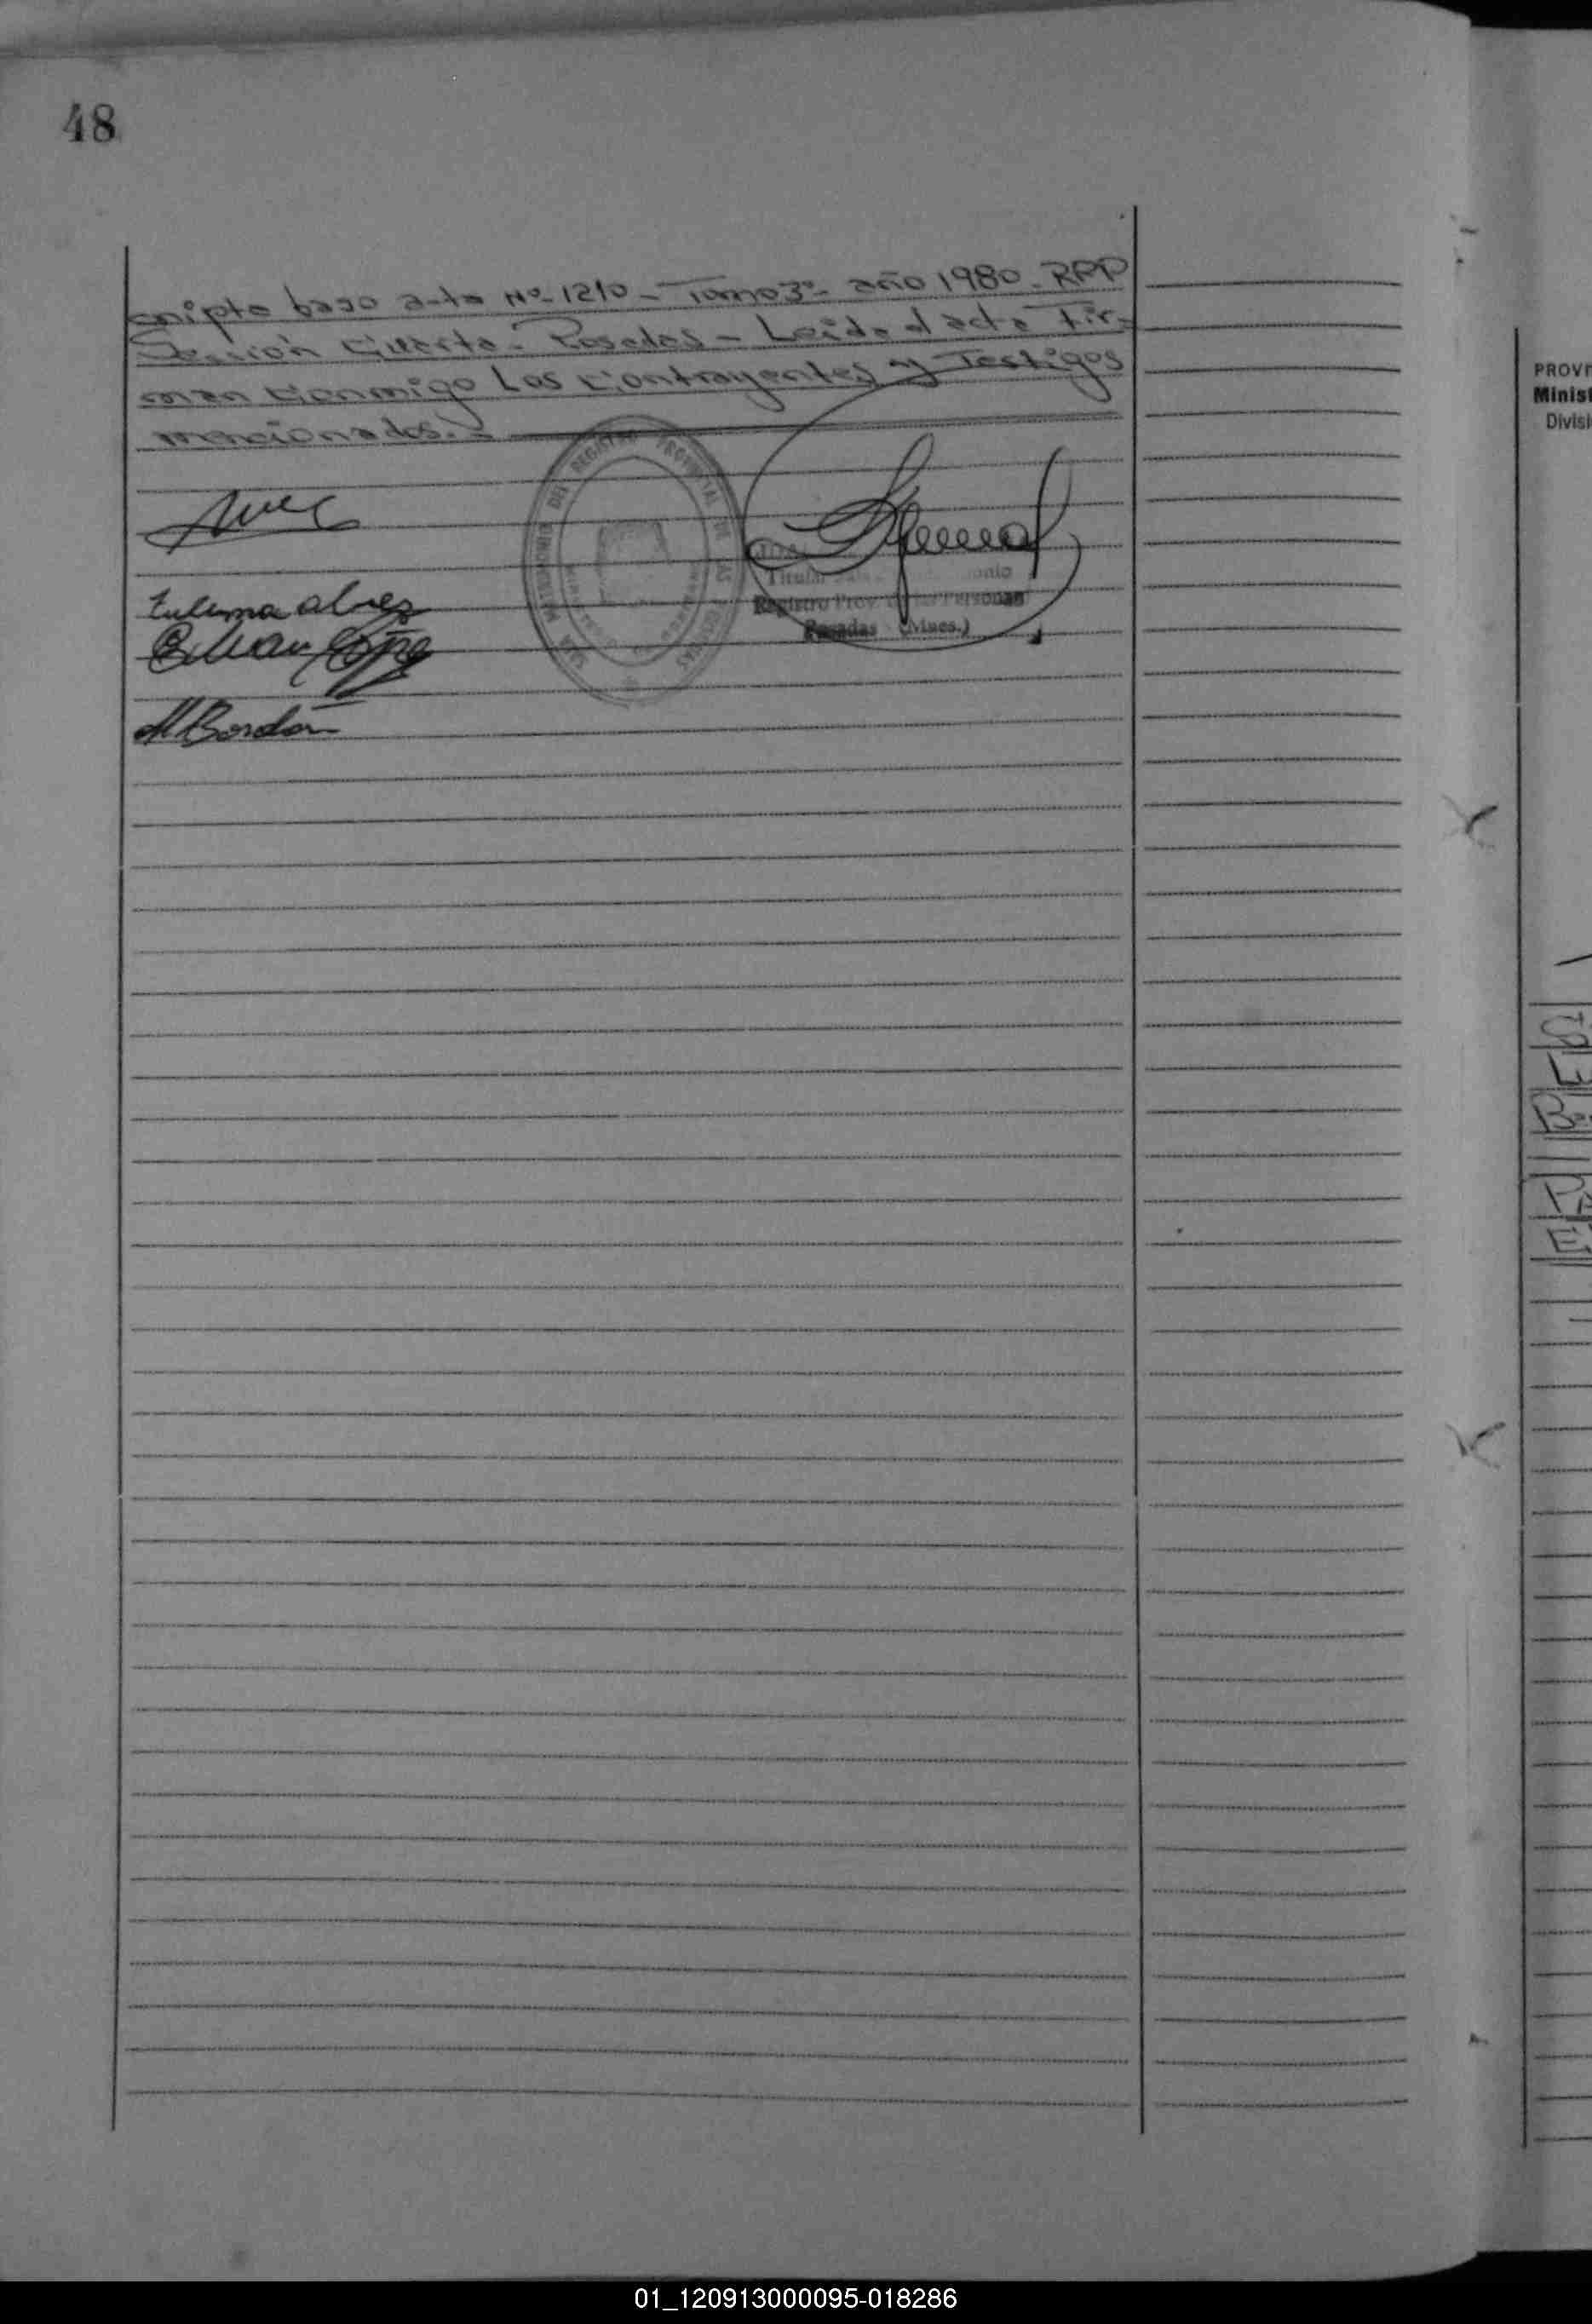 48
cripto bajo acta Nº 1210 - Tomo 3º - año 1980 - RPP
Sección Cuarta - Posadas - Leída el acta fir-
man conmigo los contrayentes y Testigos
mencionados.-
Zulema alvez
M Bordón
SALA MATRIMONIO DEL REGISTRO PROVINCIAL DE LAS PERSONAS
Titular
Registro Prov. de las Personas
Posadas (Mnes.)
PROVI
Minist
Divisi
01_120913000095-018286